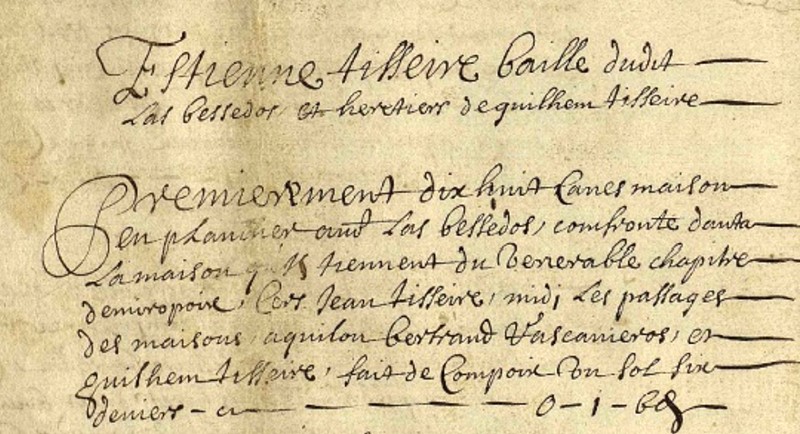 Estienne tisseire baille dudit
Las bessedos, et heretiers de guilhem tisseire
Premierement dix huit Canes maison
en plannier aud Las bessedos, comfronte dauta
La maison qu'ils tiennent du Venerable chapitre
de miropoix, Cers Jean tisseire, midi Les passages
des maisons, aquilon bertrand Vascanieros, et
guilhem tisseire, fait de Compoix Un sol six
deniers - cy 0 - 1 - 6d